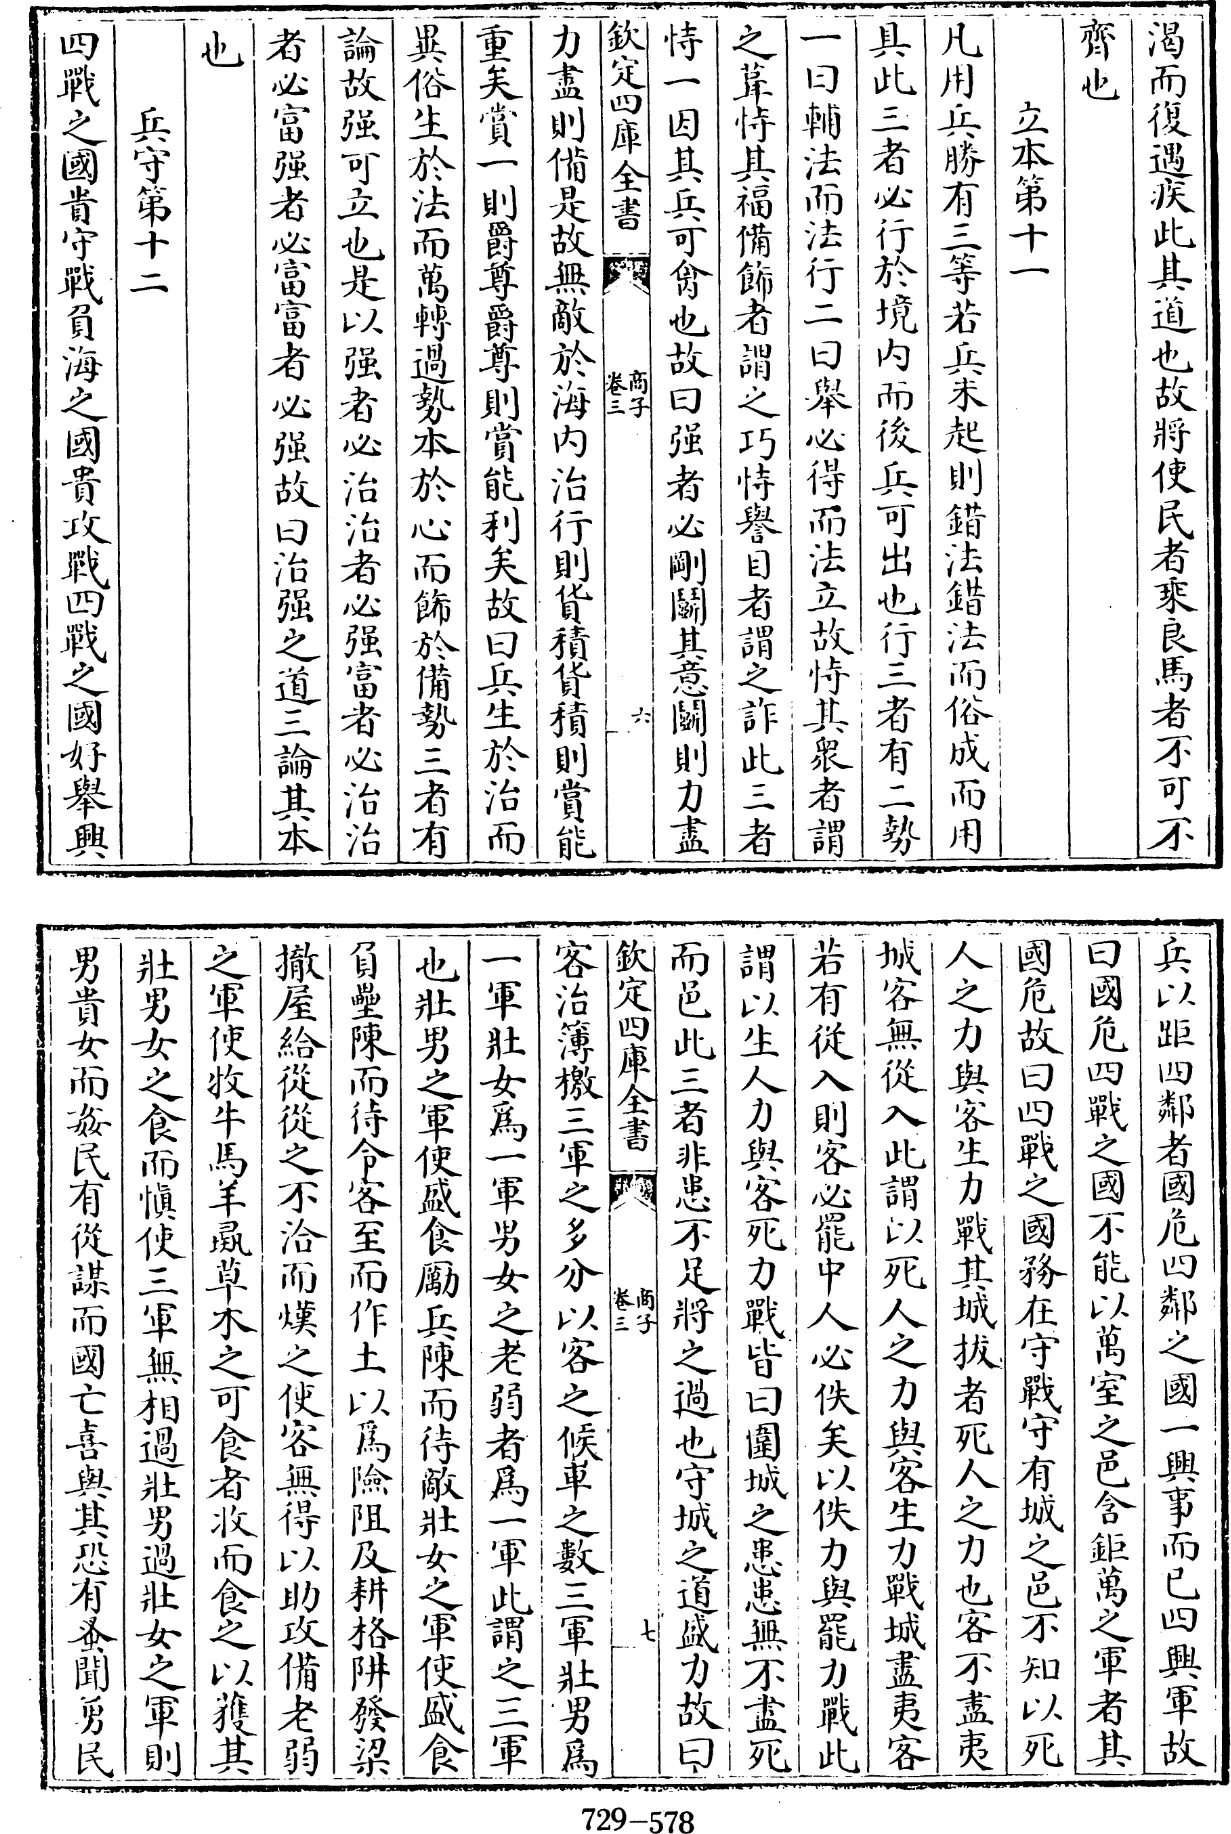 渴而復遇疾此其道也故將使民者乘良馬者不可不
齊也
立本第十一
凡用兵勝有三等若兵未起則錯法錯法而俗成而用
具此三者必行於境内而後兵可出也行三者有二勢
一曰輔法而法行二曰舉必得而法立故恃其衆者謂
之葺恃其福備飾者謂之巧恃譽目者謂之詐此三者
恃一因其兵可禽也故曰强者必剛鬭其意鬭則力盡
欽定四庫全書
商子
卷三
六
力盡則備是故無敵於海内治行則貨積貨積則賞能
重矣賞一則爵尊爵尊則賞能利矣故曰兵生於治而
異俗生於法而萬轉過勢本於心而飾於備勢三者有
論故强可立也是以强者必治治者必强富者必治治
者必富强者必富富者必强故曰治强之道三論其本
也
兵守第十二
四戰之國貴守戰負海之國貴攻戰四戰之國好舉興
兵以距四鄰者國危四鄰之國一興事而已四興軍故
曰國危四戰之國不能以萬室之邑含鉅萬之軍者其
國危故曰四戰之國務在守戰守有城之邑不知以死
人之力與客生力戰其城拔者死人之力也客不盡夷
城客無從入此謂以死人之力與客生力戰城盡夷客
若有從入則客必罷中人必佚矣以佚力與罷力戰此
謂以生人力與客死力戰皆曰圍城之患患無不盡死
而邑此三者非患不足將之過也守城之道盛力故曰
欽定四庫全書
商子
卷三
七
客治簿檄三軍之多分以客之候車之數三軍壯男爲
一軍壯女爲一軍男女之老弱者爲一軍此謂之三軍
也壯男之軍使盛食厲兵陳而待敵壯女之軍使盛食
負壘陳而待令客至而作土以爲險阻及耕格阱發梁
撤屋給從從之不洽而熯之使客無得以助攻備老弱
之軍使牧牛馬羊彘草木之可食者收而食之以獲其
壯男女之食而慎使三軍無相過壯男過壯女之軍則
男貴女而姦民有從謀而國亡喜與其恐有蚤聞勇民
729-578